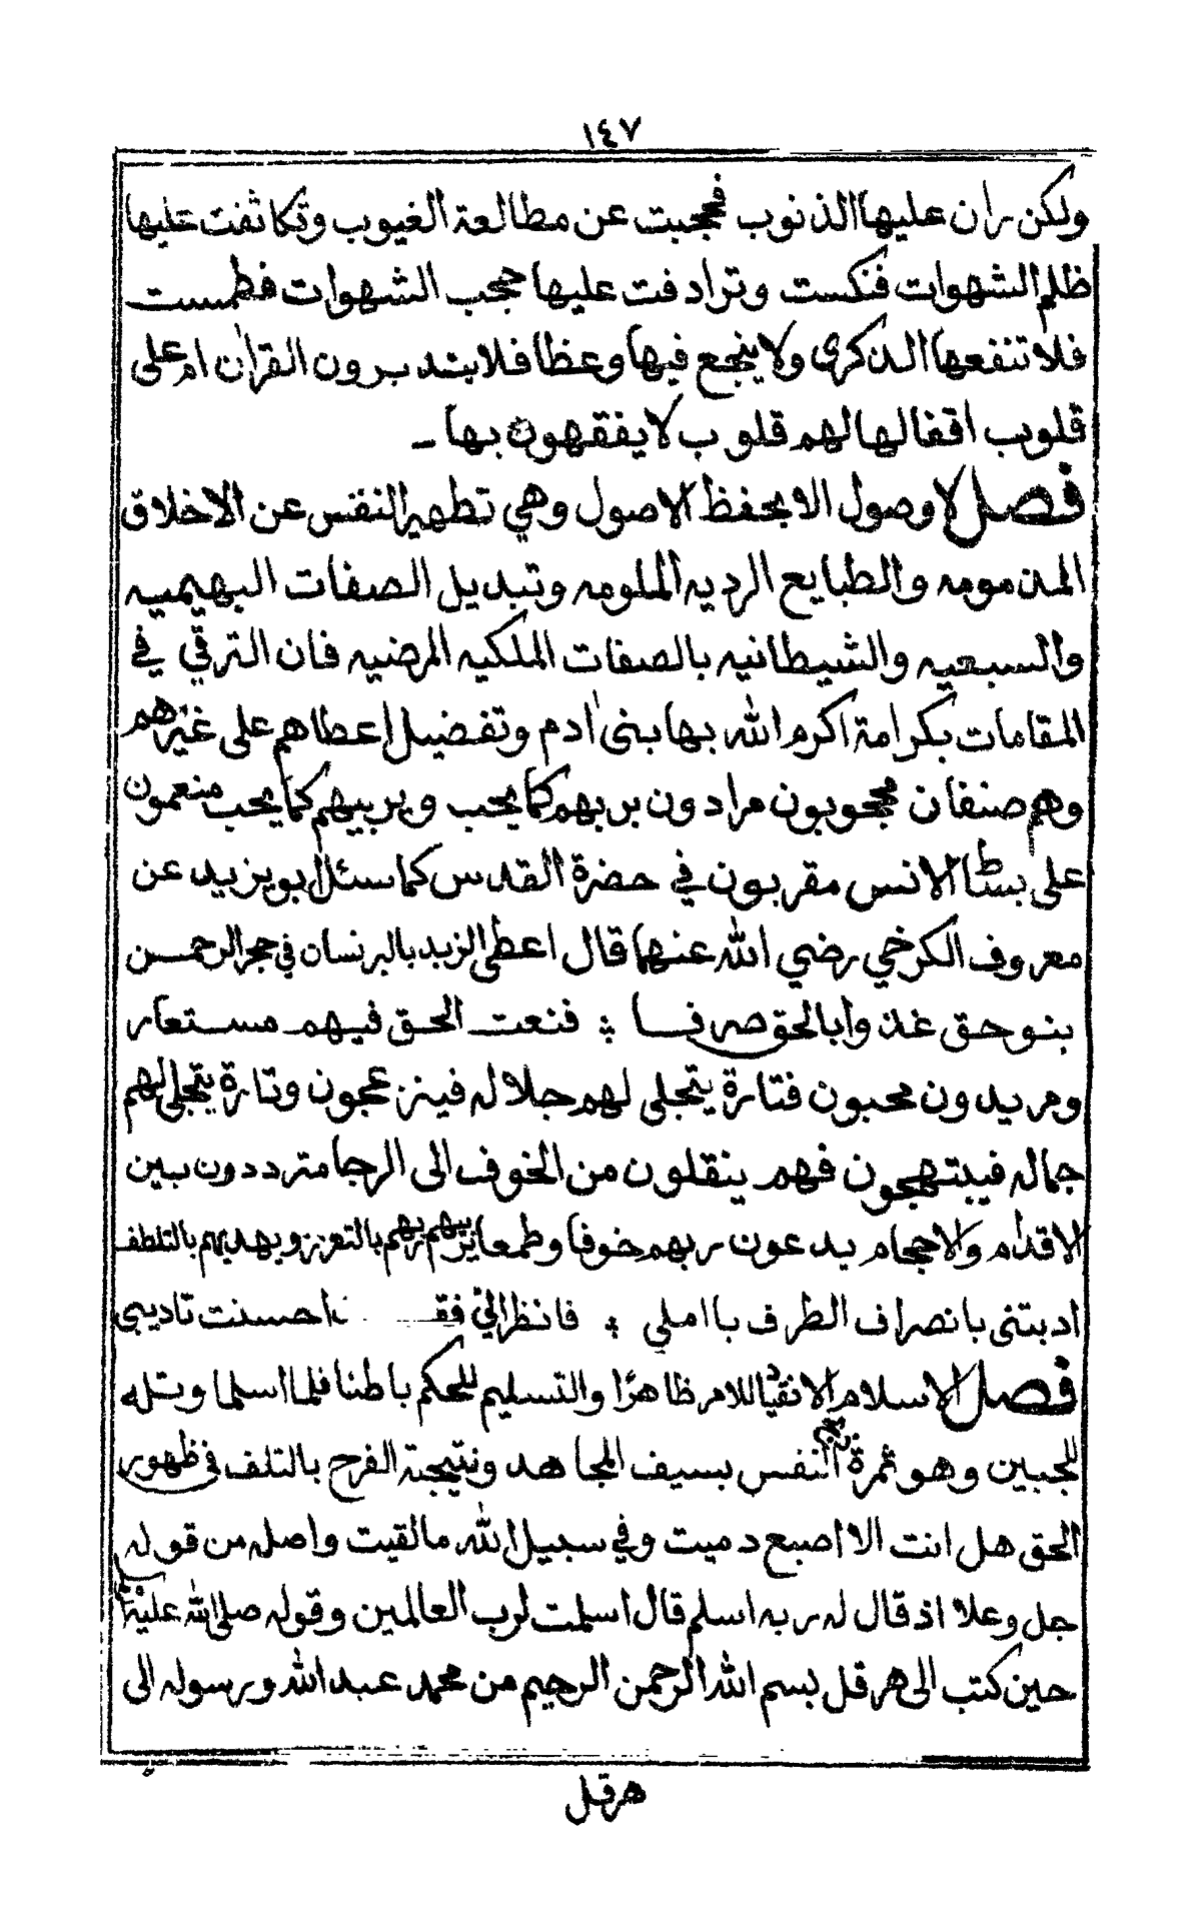 ١٤٧
ولكن ران عليها الذنوب فحجبت عن مطالعة الغيوب وتكاثفت عليها
ظلم الشهوات فنكست وترادفت عليها حجب الشهوات فطمست
فلا تنفعها الذكرى ولا ينجع فيها وعظا فلا يتدبرون القران ام على
قلوب اقفالها لهم قلوب لا يفقهون بها
فصل لا وصول الا بحفظ الاصول وهي تطهير النفس عن الاخلاق
المذمومه والطبايع الرديه الملومه وتبديل الصفات البهيميه
والسبعيه والشيطانيه بالصفات الملكيه المرضيه فان الترقي في
المقامات بكرامة اكرم الله بها بنى ادم وتفضيل اعطاهم على غيرهم
وهم صنفان محجوبون مرادون بربهم كما يحب ويربيهم كما يحب منعمون
على بساط الانس مقربون في حضرة القدس كما سئل ابو يزيد عن
معروف الكرخي رضي الله عنهما قال اعطى الزبد بالبرنسان في حجر الرحمن
بنو حق غذوا بالحق صرفا ؛ فنعت الحق فيهم مستعار
ومريدون محبون فتارة يتجلى لهم جلاله فينزعجون وتارة يتجلى لهم
جماله فيبتهجون فهم ينقلون من الخوف الى الرجا مترددون بين
الاقدام والاحجام يدعون ربهم خوفا وطمعا يربيهم ربهم بالتعزز ويهديهم بالتلطف
ادبتنى بانصراف الطرف يا املي ؛ فانظر الي فقـ احسنت تاديبي
فصل الاسلام الانقياد للامر ظاهرًا والتسليم للحكم باطنا فلما اسلما وتله
للجبين وهو ثمرة ذبح النفس بسيف المجاهد ونتيجة الفرح بالتلف في ظهور
الحق هل انت الا اصبع دميت وفي سبيل الله ما لقيت واصله من قوله
جل وعلا اذ قال له ربه اسلم قال اسلمت لرب العالمين وقوله صلى الله عليه
حين كتب الى هرقل بسم الله الرحمن الرحيم من محمد عبد الله ورسوله الى
هرقل